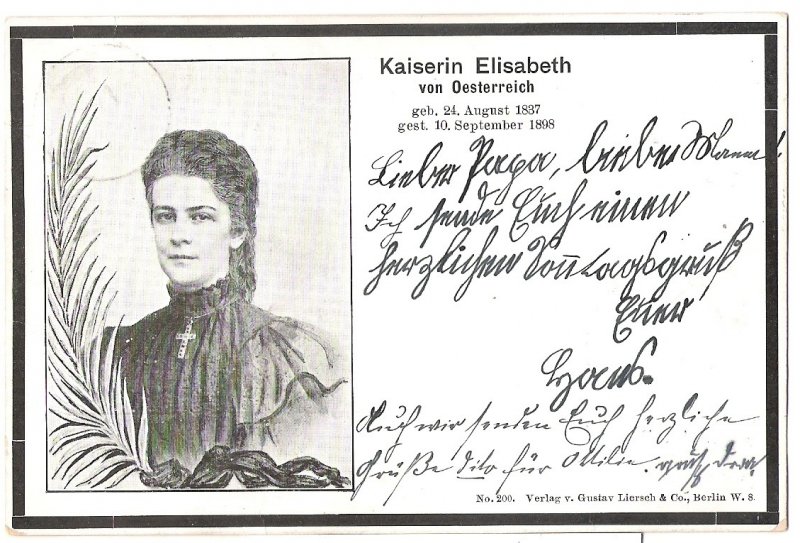 Kaiserin Elisabeth
von Oesterreich
geb. 24. August 1837
gest. 10. September 1898
Lieber Papa, liebe Mama!
Ich sende Euch einen
herzlichen Sonntagsgruß
Euer
Hans.
Auch wir senden Euch herzliche
Grüße dito für Ottilie.
No. 200. Verlag v. Gustav Liersch & Co., Berlin W. 8.